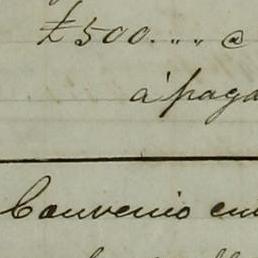 £500. „ „ @
á paga
Convenio en